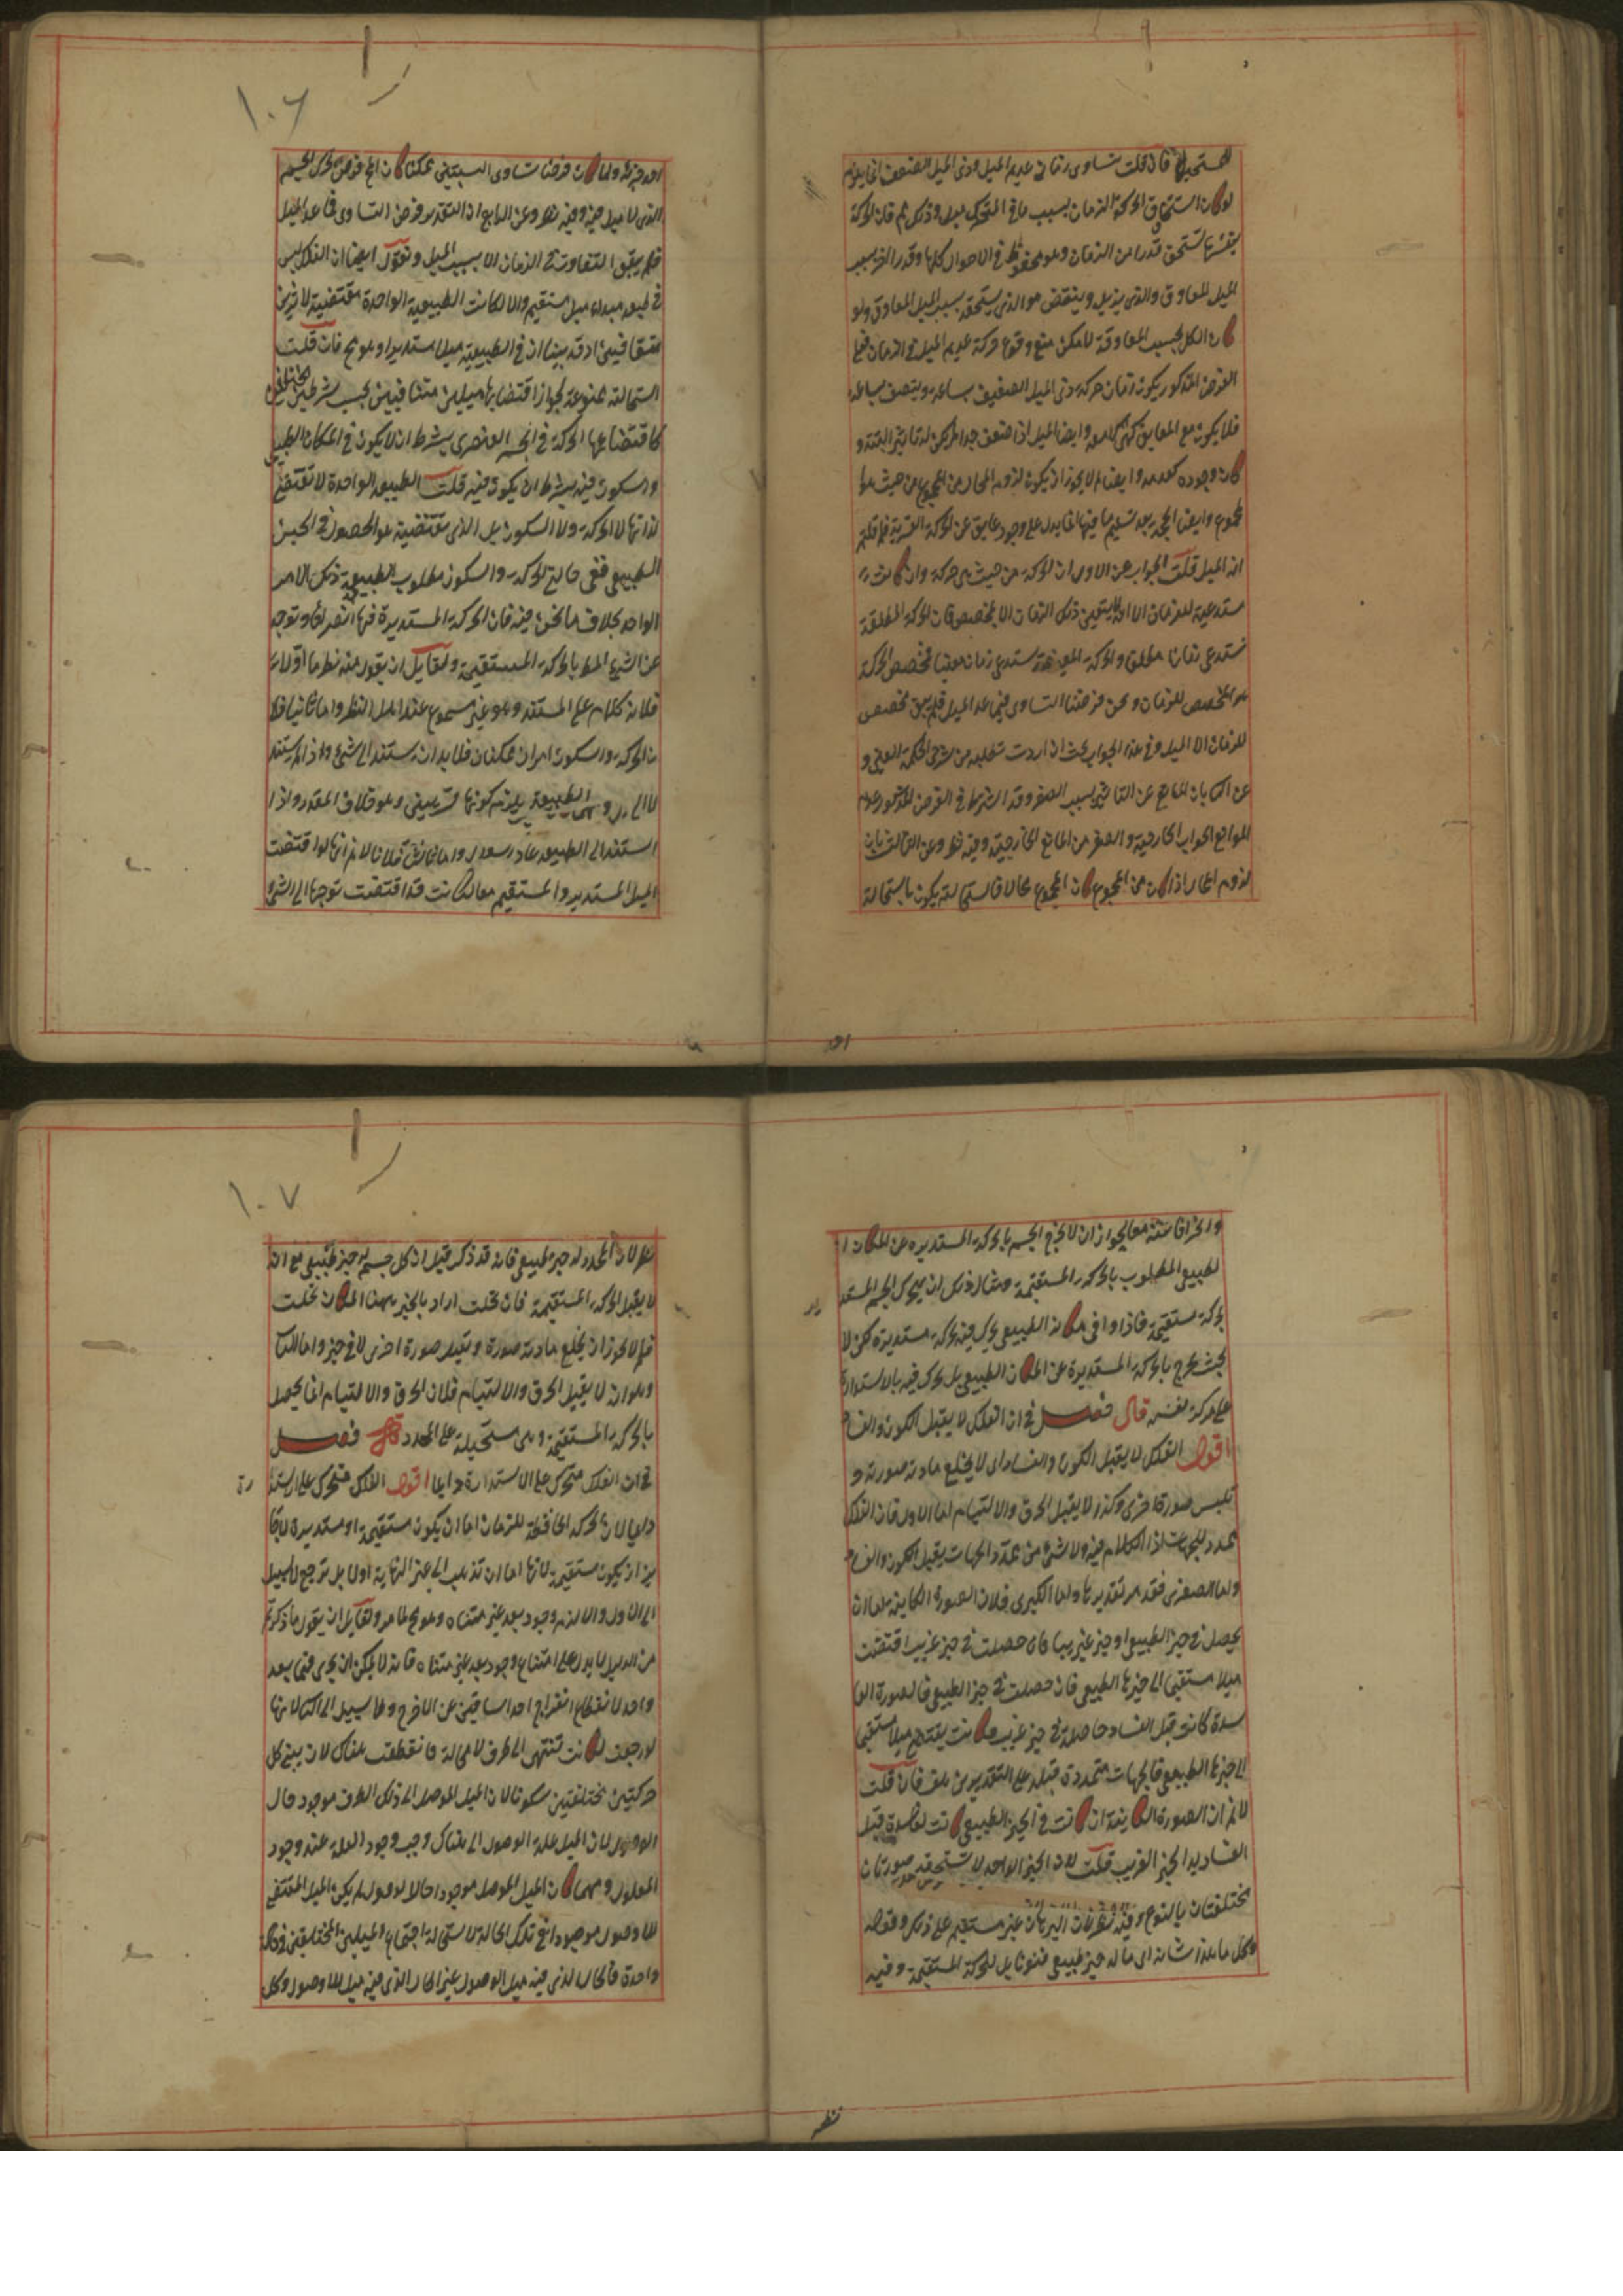 المستحيل فان قلت تساوى زمان عديم الميل وذى الميل الضعيف انما يلزم
لو كان استحقاق الحركة الزمان بسبب ما فى المتحرك ميل وذلك ثم فان الحركة
بنفسها تستحق قدرا من الزمان وهو محفوظ فى الاحوال كلها وقدرا اخر بسبب
الميل المعاوق والذى يزيل وينقص هو الذى يستحقه بسبب الميل المعاوق ولو
كان الكل بحسب المعاوقة لامكن منع وقوع حركة عديم الميل فى الزمان فعلى
الفرض المذكور يكون زمان حركة ذى الميل الضعيف ساعة ونصف ساعة
فلا يكون مع العايق كهى لا معه وايضا الميل اذا ضعف جدا لم يكن له تاثير البتة و
كان وجوده كعدمه وايضا لم لا يجوز ان يكون لزوم المحال من المجموع من حيث هو
مجموع وايضا الحجة بعد تسليم ما فيها انما يدل على وجود عايق عن الحركة القسرية فلم قلتم
انه الميل قلت الجواب عن الاول ان الحركة من حيث هى حركة وان كانت
مستدعية للزمان الا انه لا يتعين ذلك الزمان الا بمخصص فان الحركة المطلقة
تستدعى زمانا مطلقا والحركة المعينة تستدعى زمانا معينا فمخصص الحركة
هو المخصص للزمان ونحن فرضنا التساوى فيما عدا الميل فلم يبق مخصص
للزمان الا الميل وفى هذا الجواب بحث ان اردت تطلبه من شرح الحكمة العينى و
عن الثانى بان المانع عن التاثير بسبب الصغر وقد اشترط فى الفرض المذكور عدم
الموانع الخارجية والصغر من المانع الخارجية وفيه نظر وعن الثالث بان
لزوم المحال اذا كان من المجموع كان المجموع محالا فاستحالته يكون باستحالة
احد
١٠٦
احد جزئه ولما كان فرضنا تساوى النسبتين ممكنا كان المح فرض تحرك الجسم
الذى لا ميل فيه وفيه نظر وعن الرابع ان التقدير فرض التساوى فى ما عدا الميل
فلم يبق التفاوت فى الزمان الا بسبب الميل ونقول ايضا ان الفلك ليس
فى طبعه مبداء ميل مستقيم والا لكانت الطبيعية الواحدة مقتضية لاثرين
متنافيين اذ قد بينا ان فى الطبيعية ميلا مستديرا وهو مح فان قلت
استحالته ممنوعة لجواز اقتضايها ميلين متنافيين بحسب شرطين مختلفين
كاقتضايها الحركة فى الجسم العنصرى بشرط ان لا يكون فى المكان الطبيعى
والسكون فيه بشرط ان يكون فيه قلت الطبيعة الواحدة لا تقتضى
لذاتها لا الحركة ولا السكون بل الذى تقتضية هو الحصول فى الحيز
الطبيعى ففى حالتى الحركة والسكون مطلوب الطبيعة ذلك الامر
الواحد بخلاف ما نحن فيه فان الحركة المستديرة فيها انصراف وتوجه
عن الشئ المط بالحركة المستقيمة ولقايل ان يقول فيه نظر اما اولا
فلانه كلام على المستند وهو غير مسموع عند اهل النظر واما ثانيا فلا
ن الحركة والسكون امران ممكنان فلا بد ان يستند الى شئ واذا لم يستند
الطبيعة يلزم كونها قسريين وهو خلاف المقدر واذا
استند الى الطبيعة عاد واما ثالثا فلانا لا نم انها لو اقتضت
الميل المستدير والمستقيم معا لكانت قد اقتضت توجها الى الشئ
والحرافا عنه معا لجواز ان لا يخرج الجسم بالحركة المستديرة عن المكان ا
لطبيعى المطلوب بالحركة المستقيمة ومثال ذلك ان يتحرك الجسم المستد
ير
بحركة مستقيمة فاذا وافى مكانه الطبيعى تحرك فيه بحركة مستديرة لكن لا
بحيث يخرج بالحركة المستديرة عن المكان الطبيعى بل تحرك فيه بالاستدارة
على مركز نفسه قال فصل فى ان الفلك لا يقبل الكون والفساد
اقول الفلك لا يقبل الكون والفساد اى لا يخلع مادته صورته و
تلبس صورة اخرى وكذا لا يقبل الخرق والالتيام اما الاول فان الفلك
محدد للجهات اذ الكلام فيه ولا شئ من محدد الجهات يقبل الكون والفساد
واما الصغرى فقد مر تقديرها واما الكبرى فلان الصورة الكاينة اما ان
يحصل فى حيز الطبيعى او حيز غريب فان حصلت فى حيز غريب اقتضت
ميلا مستقيما الى حيزها الطبيعى فان حصلت فى حيز الطبيعى فالصورة الفا
سدة كانت قبل الفساد حاصلة فى حيز غريب فكانت يقتضى ميلا مستقيما
الى حيزها الطبيعى فالجهات متحددة قبله على التقديرين هف فان قلت
لا نم ان الصورة الكاينة ان كانت فى الحيز الطبيعى كانت الفاسدة قبل
الفساد بد الحيز الغريب قلت لان الحيز الواحد لا تستحقه صورتان
مختلفتان بالنوع وفيه نظر فان البرهان غير مستقيم على ذلك وقوله
وكل ما هذا شانه اى ما له حيز طبيعى فهو قابل للحركة المستقيمة وفيه
نظر
١٠٧
نظر لان المحدد له حيز طبيعى فانه قد ذكر قبل ان كل جسم له حيز طبيعى مع انه
لا يقبل الحركة المستقيمة فان قلت اراد بالحيز ههنا المكان قلت
فلم لا يجوز ان يخلع مادته صورة وتقبل صورة اخرى لا فى حيز واما الثانى
وهو انه لا يقبل الخرق والالتيام فلان الخرق والالتيام انما يحصل
بالحركة المستقيمة وهى مستحيلة على المحدد قال فصل
فى ان الفلك متحرك على الاستدارة دايما اقول الفلك متحرك على الاستدا
رة
دايما لان الحركة الحافظة للزمان اما ان يكون مستقيمة او مستديرة لا جا
يز ان يكون مستقيمة لانها اما ان تذهب الى غير النهاية او لا بل ترجع لا سبيل
الى الاول والا لزم وجود بعد غير متناه وهو مح لما مر ولقايل ان يقول ما ذكرتم
من الدليل لا يدل على امتناع وجود بعد غير متناه فانه لا يمكن ان يجرى فيما بعد
واحد لانقطاع انفراج احد الساقين عن الاخر ولا سبيل الى الثانى لانها
لو رجعت لكانت تنتهى الى طرف لا محالة فانقطعت هناك لان بين كل
حركتين مختلفتين سكونا لان الميل الموصل الى ذلك الطرف موجود حال
الوصول لان الميل علة الوصول الى هناك وجب وجود العلة عند وجود
المعلول ومهما كان الميل الموصل موجودا حالا لوصول لم يكن الميل المقتضى
للاوصول موجودا فى تلك الحالة لاستحالة اجتماع الميلين المختلفين فى حالة
واحدة فالحال الذى فيه ميل الوصول غير الحال الذى فيه ميل اللاوصول وكل